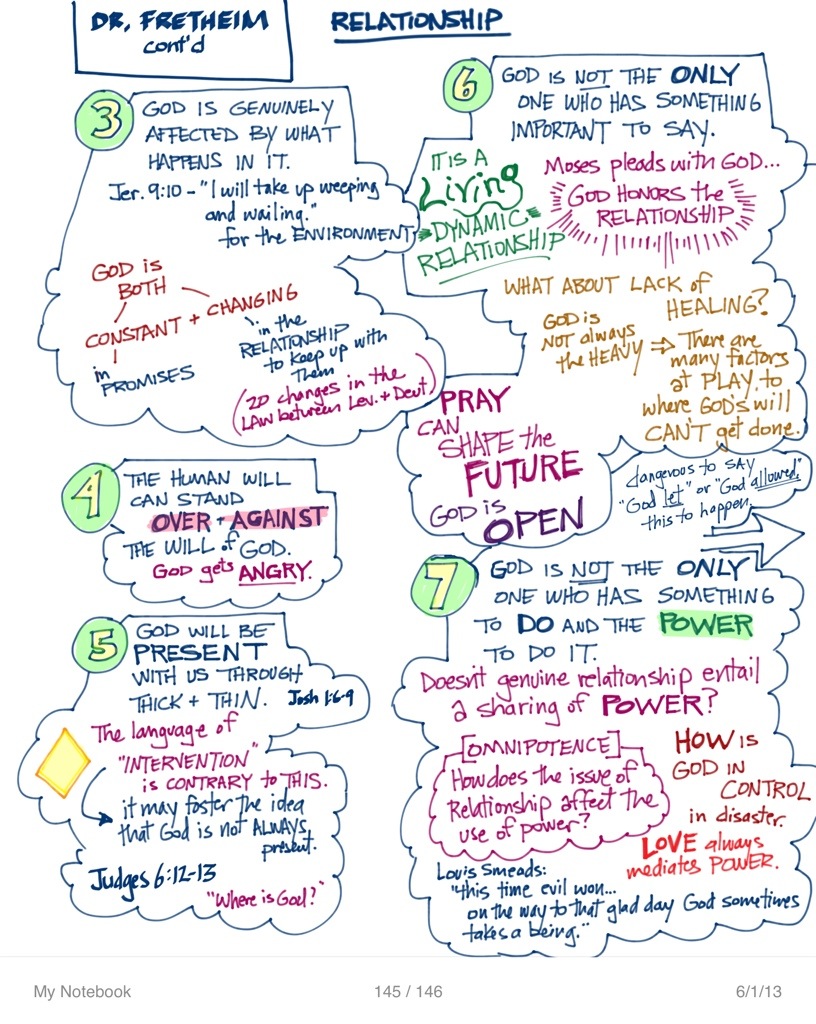 DR. FRETHEIM
cont'd
RELATIONSHIP
3
GOD IS GENUINELY
AFFECTED BY WHAT
HAPPENS IN IT.
Jer. 9:10 - "I will take up weeping
and wailing."
for the ENVIRONMENT
GOD is
BOTH
CONSTANT + CHANGING
in
PROMISES
in the
RELATIONSHIP
to keep up with
Them
(20 changes in the
LAW between Lev. + Deut)
4
THE HUMAN WILL
CAN STAND
OVER + AGAINST
THE WILL of GOD.
GOD gets ANGRY.
5
GOD WILL BE
PRESENT
WITH US THROUGH
THICK + THIN. Josh 1:6-9
The language of
"INTERVENTION"
is CONTRARY to THIS.
it may foster the idea
that God is not ALWAYS
present.
Judges 6:12-13
"Where is God?"
6
GOD IS NOT THE ONLY
ONE WHO HAS SOMETHING
IMPORTANT TO SAY.
IT IS A
Living
DYNAMIC
RELATIONSHIP
Moses pleads with GOD...
GOD HONORS the
RELATIONSHIP
WHAT ABOUT LACK of
HEALING?
GOD is
NOT always
the HEAVY ⇒ There are
many factors
at PLAY to
where GOD'S will
CAN'T get done.
PRAY
CAN
SHAPE the
FUTURE
GOD is
OPEN
dangerous to SAY
"God let" or "God allowed"
this to happen.
7
GOD IS NOT THE ONLY
ONE WHO HAS SOMETHING
TO DO AND THE POWER
TO DO IT.
Doesn't genuine relationship entail
a sharing of POWER?
[OMNIPOTENCE]
How does the issue of
Relationship affect the
use of power?
HOW is
GOD IN
CONTROL
in disaster.
LOVE always
mediates POWER.
Lovis Smeads:
"this time evil won...
on the way to that glad day God sometimes
takes a being."
My Notebook
145 / 146
6/1/13